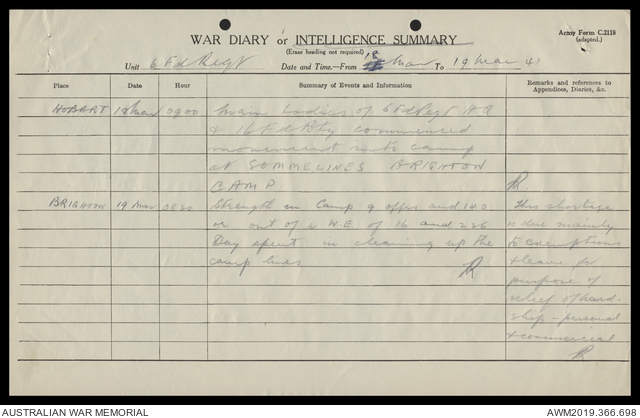 WAR DIARY or INTELLIGENCE SUMMARY
Army Form C.2118
(adapted.)
(Erase heading not required)
Unit 6 Fd Regt Date and Time.—From 18 Mar To 19 Mar 41
Place Date Hour Summary of Events and Information Remarks and references to Appendices, Diaries, &c.
HOBART 18 Mar 0900 Main bodies of 6 Fd Regt HQ
& 16 Fd Bty commenced
movement into camp
at SOMMELINES BRIGHTON
CAMP
BRIGHTON 19 Mar 0830 Strength in Camp 9 offrs and 140
or out of a W.E. of 16 and 286
Day spent in cleaning up the
camp lines
This shortage
is due mainly
to exemptions
& leave for
purpose of
relief of hard-
ship - personal
& commercial
AUSTRALIAN WAR MEMORIAL
AWM2019.366.698